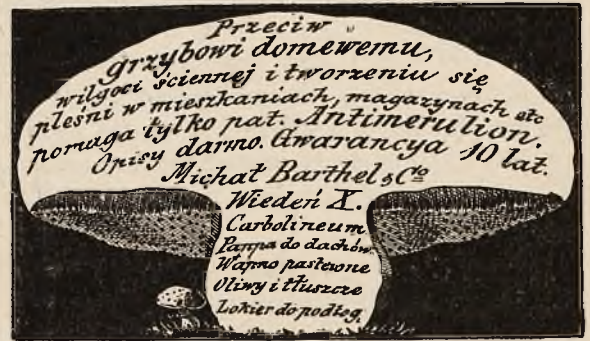 Przeciw
grzybowi domewemu,
wilgoci ściennej i tworzeniu się
pleśni w mieszkaniach, magazynach etc
pomaga tylko pat. Antimerulion.
Opisy darmo. Gwarancya 10 lat.
Michał Barthel & Cto
Wiedeń X.
Carbolineum
Pappa do dachów
Wapno pastewne
Oliwy i tłuszcze
Lokier do podłog.